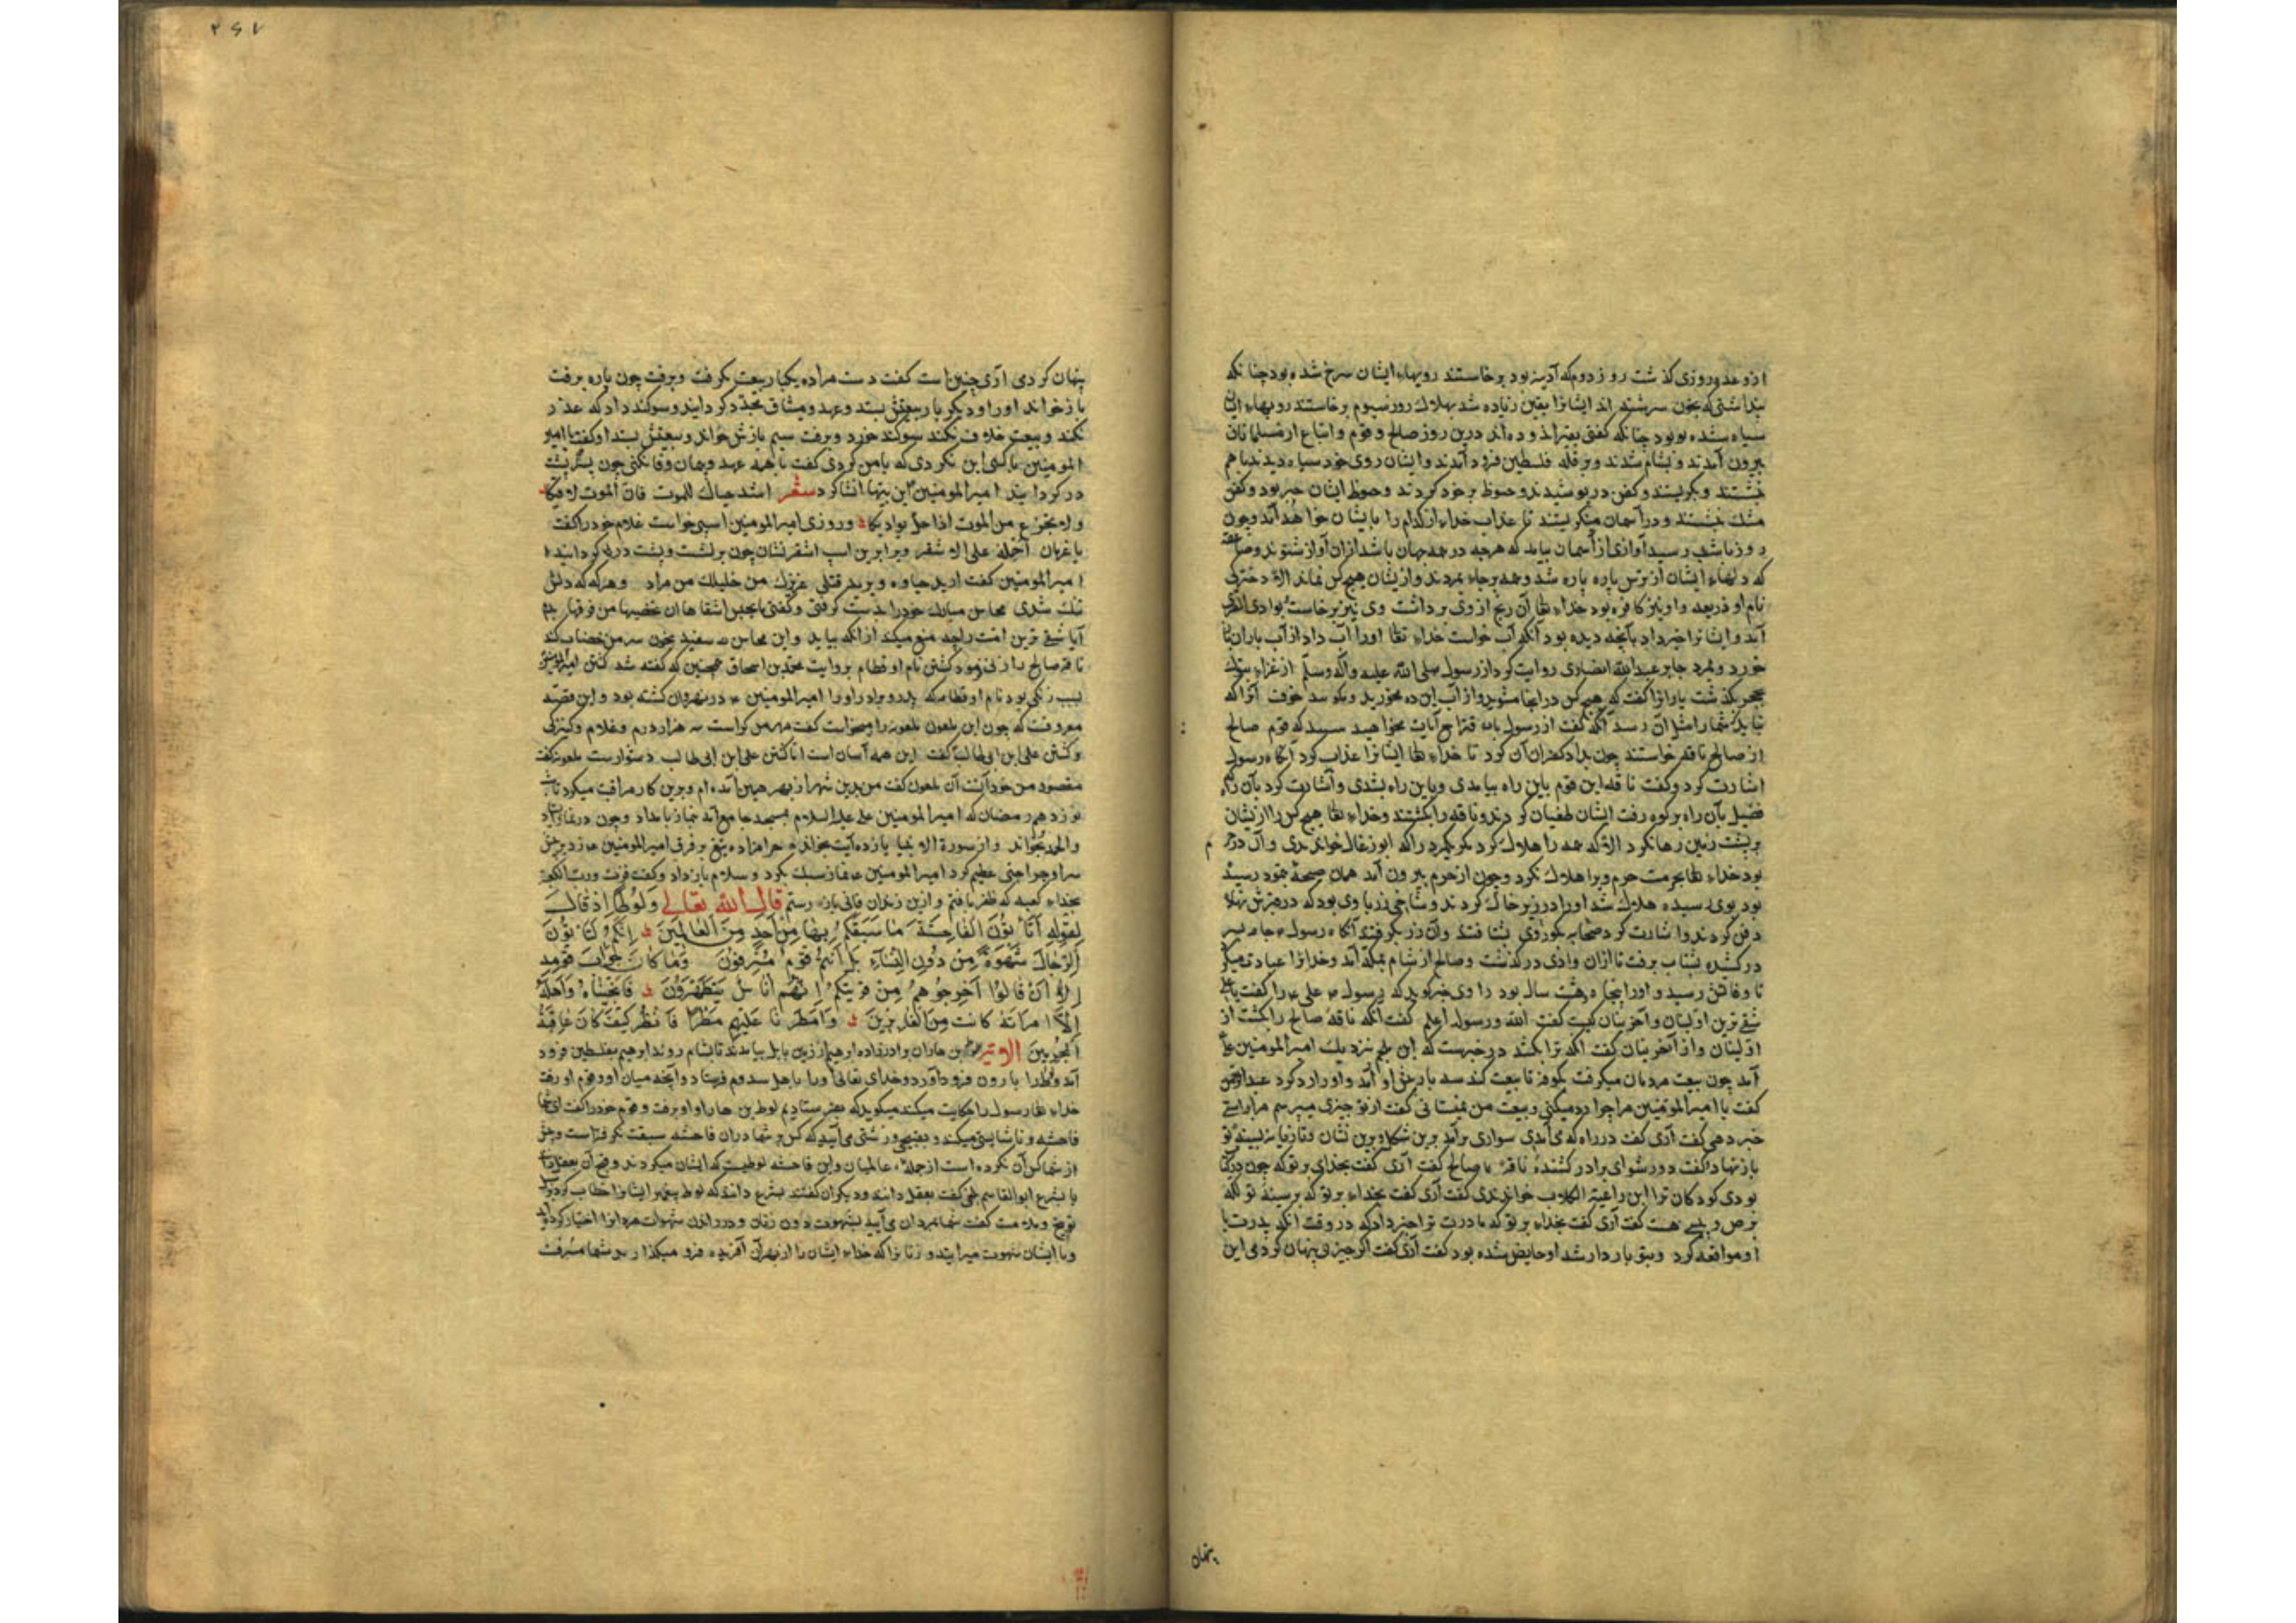 از وعده روزی گذشت روز دوم که آدینه بود برخاستند رویهاء ایشان سرخ شده بود چنانکه
پنداشتی که بخون سرشته اند ایشانرا یقین زیاده شد بهلاک روز سیوم برخاستند رویهاء ایشان
سیاه شده بود چنانکه گفتی بقیر اندوده اند درین روز صالح و قوم و اتباع از مسلمانان
بیرون آمدند و بشام شدند و برمله فلسطین فرود آمدند و ایشان روی خود سیاه دیدند باهم
نشستند و بگریستند و کفن درپوشیدند و حنوط برخود کردند و حنوط ایشان صبر بود و کفن
نشستند و در آسمان مینگریستند تا عذاب خداء از کدام راه بایشان خواهد آمد و چون
روز باشد رسید آوازی از آسمان بیامد که هرچه در همه جهان باشد ازان آواز شنوند و صاعقه
که دلهاء ایشان از ترس پاره پاره شد و همه برجاء بمردند و از یشان هیچ کس نماند الا دخترکی
نام او ذریعه و او نیز کافره بود خداء تعا آن رنج از وی برداشت وی نیز برخاست بوادی القری
آمد و ایشانرا خبر داد بآنچه دیده بود آنگه آب خواست خداء تعا اورا آب داد از آب باران تا
خورد و بمرد جابر عبدالله انصاری روایت کرد از رسول صلی الله علیه و آله وسلم از غزاء تبوک
بحجر بگذشت یارانرا گفت که هیچ کس در اینجا مشوید و از آب این ده مخورید و خوفت آنرا که
نباید که شمارا مثل آن رسد آنگه گفت از رسول باقتراح آیات مخواهید که قوم صالح
از صالح ناقه خواستند چون بداد کفران آن کرد تا خداء تعا ایشانرا عذاب کرد آنگاه رسول
اشارت کرد و گفت ناقه این قوم باین راه بیامدی و باین راه بشدی و اشارت کرد بآن راه
فصیل بآن راه بر کوه رفت ایشان طغیان کردند و ناقه را بکشتند و خداء تعا هیچ کس را از یشان
بر پشت زمین رها نکرد الا که همه را هلاک کرد مگر یکمرد را که ابو رغال خواندندی و آن در حرم
بود خداء تعا بحرمت حرم ویرا هلاک نکرد و چون از حرم بیرون آمد همان صیحه ثمود رسیده
بود بوی رسید هلاک شد اورا در زیر خاک کردند و شاخی زر با وی بود که درپیش نهاد
دفن کردند و اشارت کرد صحابه بگور وی بشتافتند و آن زر برگرفتند آنگاه رسول جامه بسر
درکشید بشتاب برفت تا ازان وادی درگذشت و صالح از شام بمکه آمد و خدایرا عبادت میکرد
تا وفاتش رسید و اورا پنجاه و هشت سال بود راوی خبر گوید که رسول علی را گفت یا علی
شقی ترین اولینان و آخرینان کیست گفت الله و رسوله اعلم گفت آنکه ناقه صالح را بکشت از
اولینان و از آخرینان گفت آنکه ترا بکشد در خبرست که ابن ملجم نزدیک امیرالمومنین
آمد چون بیعت مردمان میگرفت بکوفه تا بیعت کند سه بار پیش او آمد و اورا رد کرد عبدالرحمن
گفت یا امیرالمومنین مرا چرا رد میکنی و بیعت من نمیستانی گفت از تو چیزی میپرسم مرا راست
خبر دهی گفت آری گفت در راه که می آمدی سواری برآمد برین شکل و برین نشان و تازیانه بسینه تو
باز نهاد و گفت دور شو ای برادر کشنده ناقه صالح گفت آری گفت بخدای بر تو که چون در کتاب
بودی کودکان ترا ابن راعیة الکلاب خواندندی گفت آری گفت بخداء بر تو که بر سینه تو لکه
برص و پیسی هست گفت آری گفت بخداء بر تو که مادرت ترا خبر داد که در وقت آنکه پدرت با
او مواقعه کرد و بتو باردار شد او حایض شده بود گفت آری گفت اگر چیزی پنهان کردمی این
پنهان
۲۶۷
پنهان کردی آری چنین است گفت دست مرا ده یکبار بیعت بگرفت و برفت چون پاره برفت
بازخواند اورا و دیگر بار بیعتش بستد و عهد و میثاق مجدد گردانید و سوگند داد که غدر
نکند و بیعت خلاف نکند سوگند خورد و برفت سیم بازش خواند و بیعتش بستد او گفت یا امیر
المومنین با کسی این نکردی که با من کردی گفت با همه عهد و پیمان وفا نکنی چون پشت
در گردانید امیرالمومنین این بیتها انشا کرد شعر اشدد حیازیمک للموت فان الموت لاقیکا
ولا تجزع من الموت اذا حل بوادیکا و روزی امیرالمومنین اسبی خواست غلام خود را گفت
یا غزوان احمله علی الاشقر ویرا برین اسب اشقر نشان چون برنشست و پشت در گردانید
امیرالمومنین گفت ارید حیاوه و یرید قتلی عذیرک من خلیلک من مراد و هرگه که دلش
تنگ شدی محاسن مبارک خود را بدست گرفتی و گفتی ما یحبس اشقاها ان یخضبها من فوقها بدم
آیا شقی ترین امت را چه منع میکند از آنکه بیاید و این محاسن سفید بخون سر من خضاب کند
ناقه صالح را زنی فرمود کشتن نام او قطام بروایت محمد بن اسحاق همچنین که گفته شد کشتن امیرالمومنین
سبب زنکی بود نام او قطامه که پدر و برادر اورا امیرالمومنین در نهروان کشته بود و این قصه
معروفت که چون این ملعون ملعونه را میخواست گفت مهر من گرانست سه هزار درم و غلام و کنیزکی
و کشتن علی بن ابی طالب گفت این همه آسان است اما کشتن علی ابن ابی طالب دشوارست ملعونه گفت
مقصود من خود آنست آن ملعون گفت من بدین شهر از بهر همین آمده ام و برین کار مراقبت میکرد تا شب
نوزدهم رمضان که امیرالمومنین علی علیه السلام بمسجد جامع آمد نماز بامداد و چون در نماز ایستاد
والحمد بخواند و از سورة الانبیا یازده آیت بخواند حرامزاده تیغ بر فرق امیرالمومنین زد برجای
سر او جراحتی عظیم کرد امیرالمومنین نماز سبک بکرد و سلام باز داد و گفت فزت و رب الکعبة
بخداء کعبه که ظفر یافتم و ازین زندان فانی باز رستم قال الله تعالی وَلُوطًا اِذْ قَالَ
لِقَوْمِهِ اَتَأْتُونَ الْفَاحِشَةَ مَا سَبَقَكُمْ بِهَا مِنْ اَحَدٍ مِنَ الْعَالَمِينَ اِنَّكُمْ لَتَأْتُونَ
الرِّجَالَ شَهْوَةً مِنْ دُونِ النِّسَاءِ بَلْ اَنْتُمْ قَوْمٌ مُسْرِفُونَ وَمَا كَانَ جَوَابَ قَوْمِهِ
اِلَّا اَنْ قَالُوا اَخْرِجُوهُمْ مِنْ قَرْيَتِكُمْ اِنَّهُمْ اُنَاسٌ يَتَطَهَّرُونَ فَاَنْجَيْنَاهُ وَاَهْلَهُ
اِلَّا امْرَاَتَهُ كَانَتْ مِنَ الْغَابِرِينَ وَاَمْطَرْنَا عَلَيْهِمْ مَطَرًا فَانْظُرْ كَيْفَ كَانَ عَاقِبَةُ
الْمُجْرِمِينَ الآیه لوط بن هاران برادرزاده ابرهیم از زمین بابل بیامدند تا بشام روند ابرهیم بفلسطین فرود
آمد و لوط را باردن فرود آورد و خدای تعالی اورا باهل سدوم فرستاد و آنچه میان او و قوم او رفت
خداء تعا رسول را حکایت میکند میگوید که بفرستادیم لوط بن هاران او برفت و قوم خود را گفت ای شما
فاحشه و ناشایستی میکنید و بقبیحی و زشتی می آیید که کس بر شما دران فاحشه سبقت نگرفته است و پیش
از شما کس آن نکرده است از جمله عالمیان و این فاحشه لواطیست که ایشان میکردند و قبح آن بعقل دانند
یا بشرع ابوالقاسم بلخی گفت بعقل دانند و دیگران گفتند بشرع دانند که لوط پیغمبر ایشانرا خطاب کرد
توبیخ و ملامت گفت شما بمردان می آیید بشهوت دون زنان و در راندن شهوات مردانرا اختیار کرده اید
و با ایشان شهوت میرانید و زنانرا که خداء ایشان را از بهر آن آفریده فرو میگذارید شما مسرفت